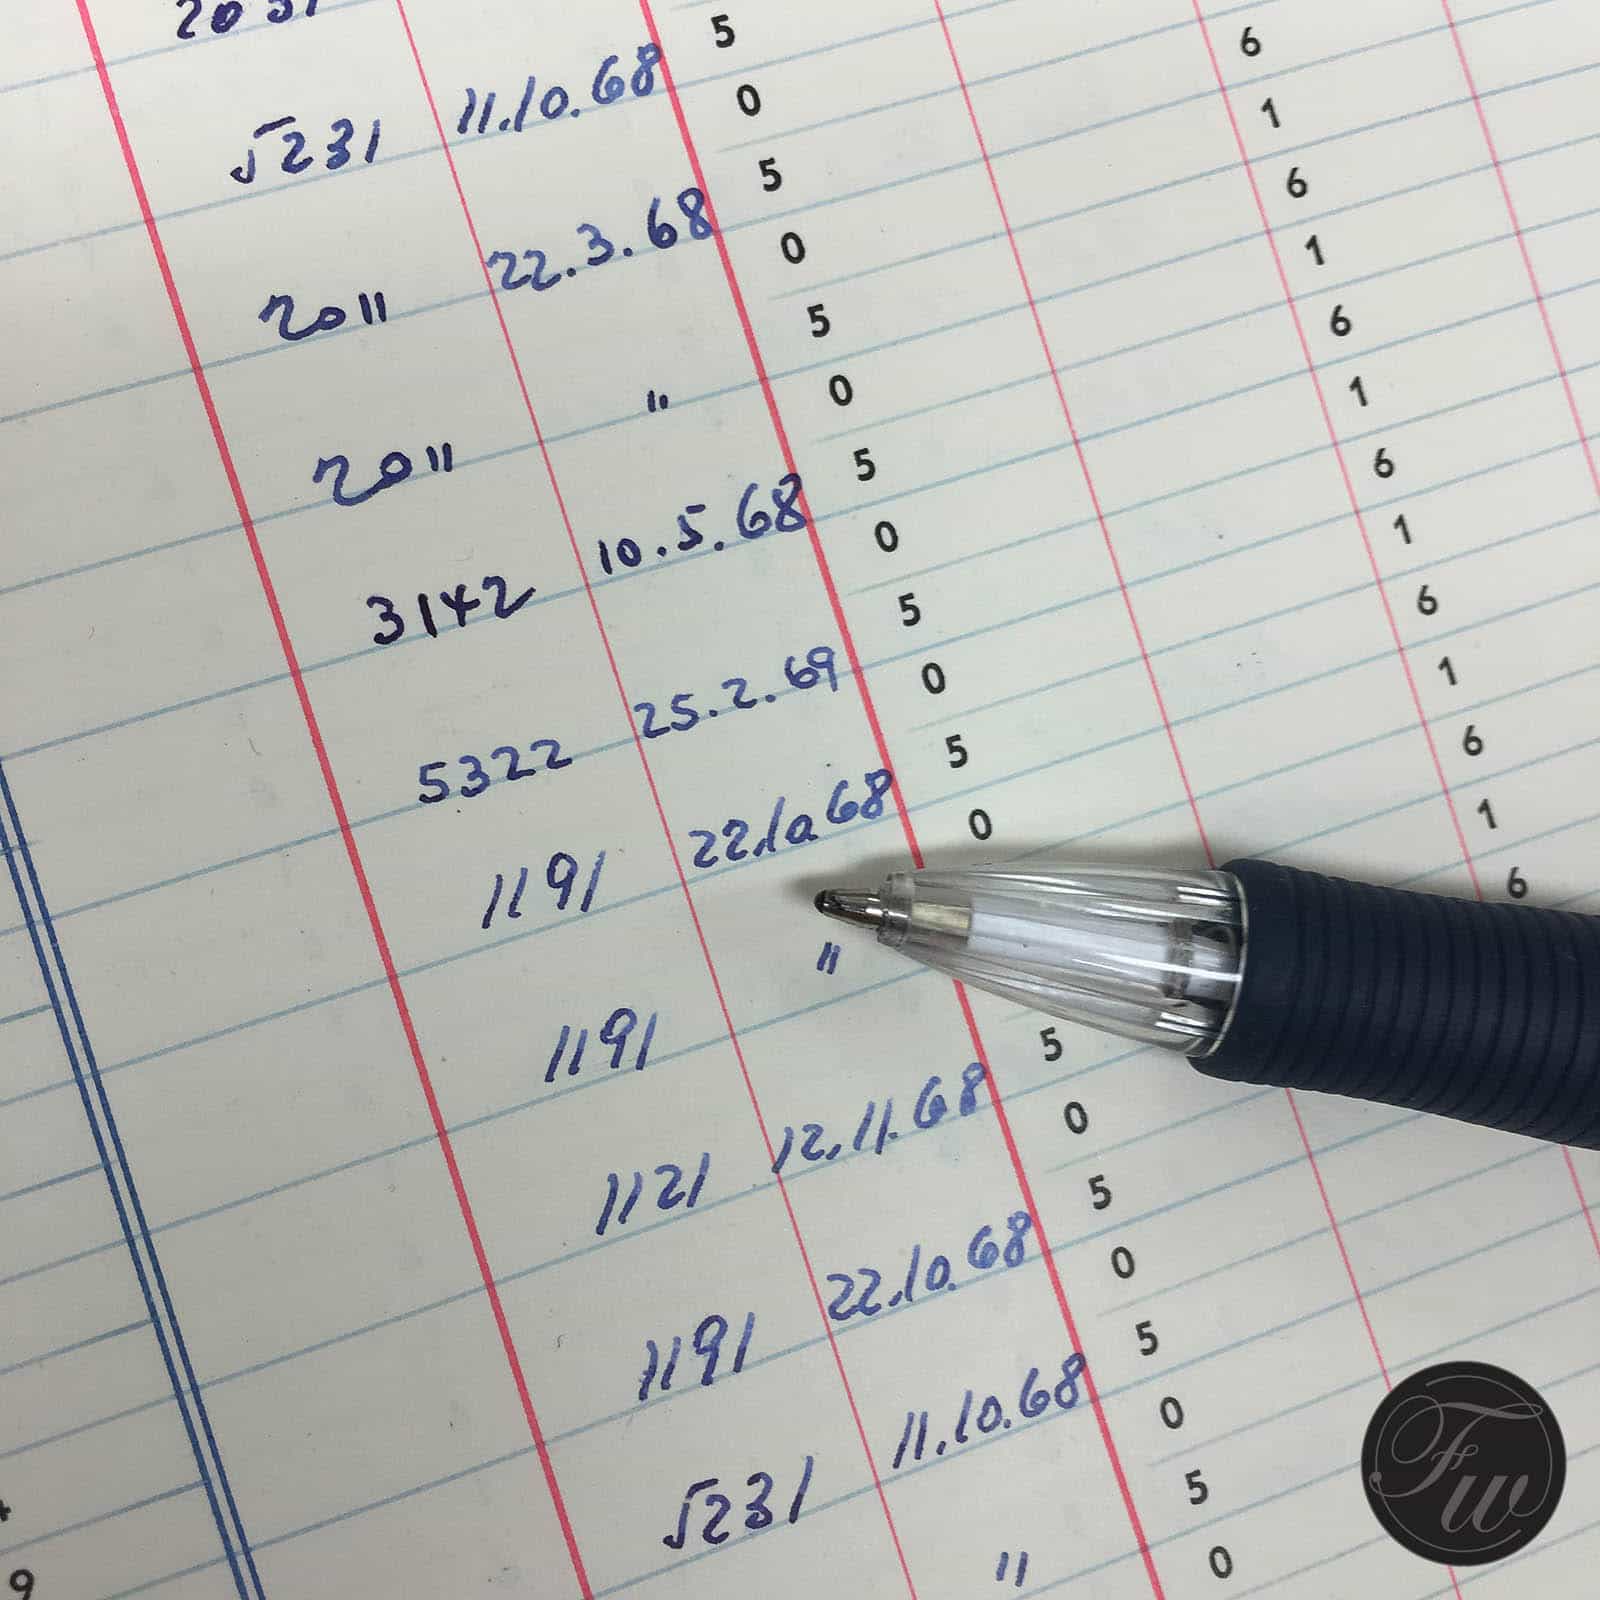 5231 11.10.68 5
0
2011 22.3.68 5 6
0 1
2011 " 5 6
0 1
3142 10.5.68 5 6
0 1
5322 25.2.69 5 6
0 1
1191 22.10.68 5 6
0 1
1191 " 6
1
1121 12.11.68 5 6
0
1191 22.10.68 5
0
5231 11.10.68 5
0
" 5
0
9
FW